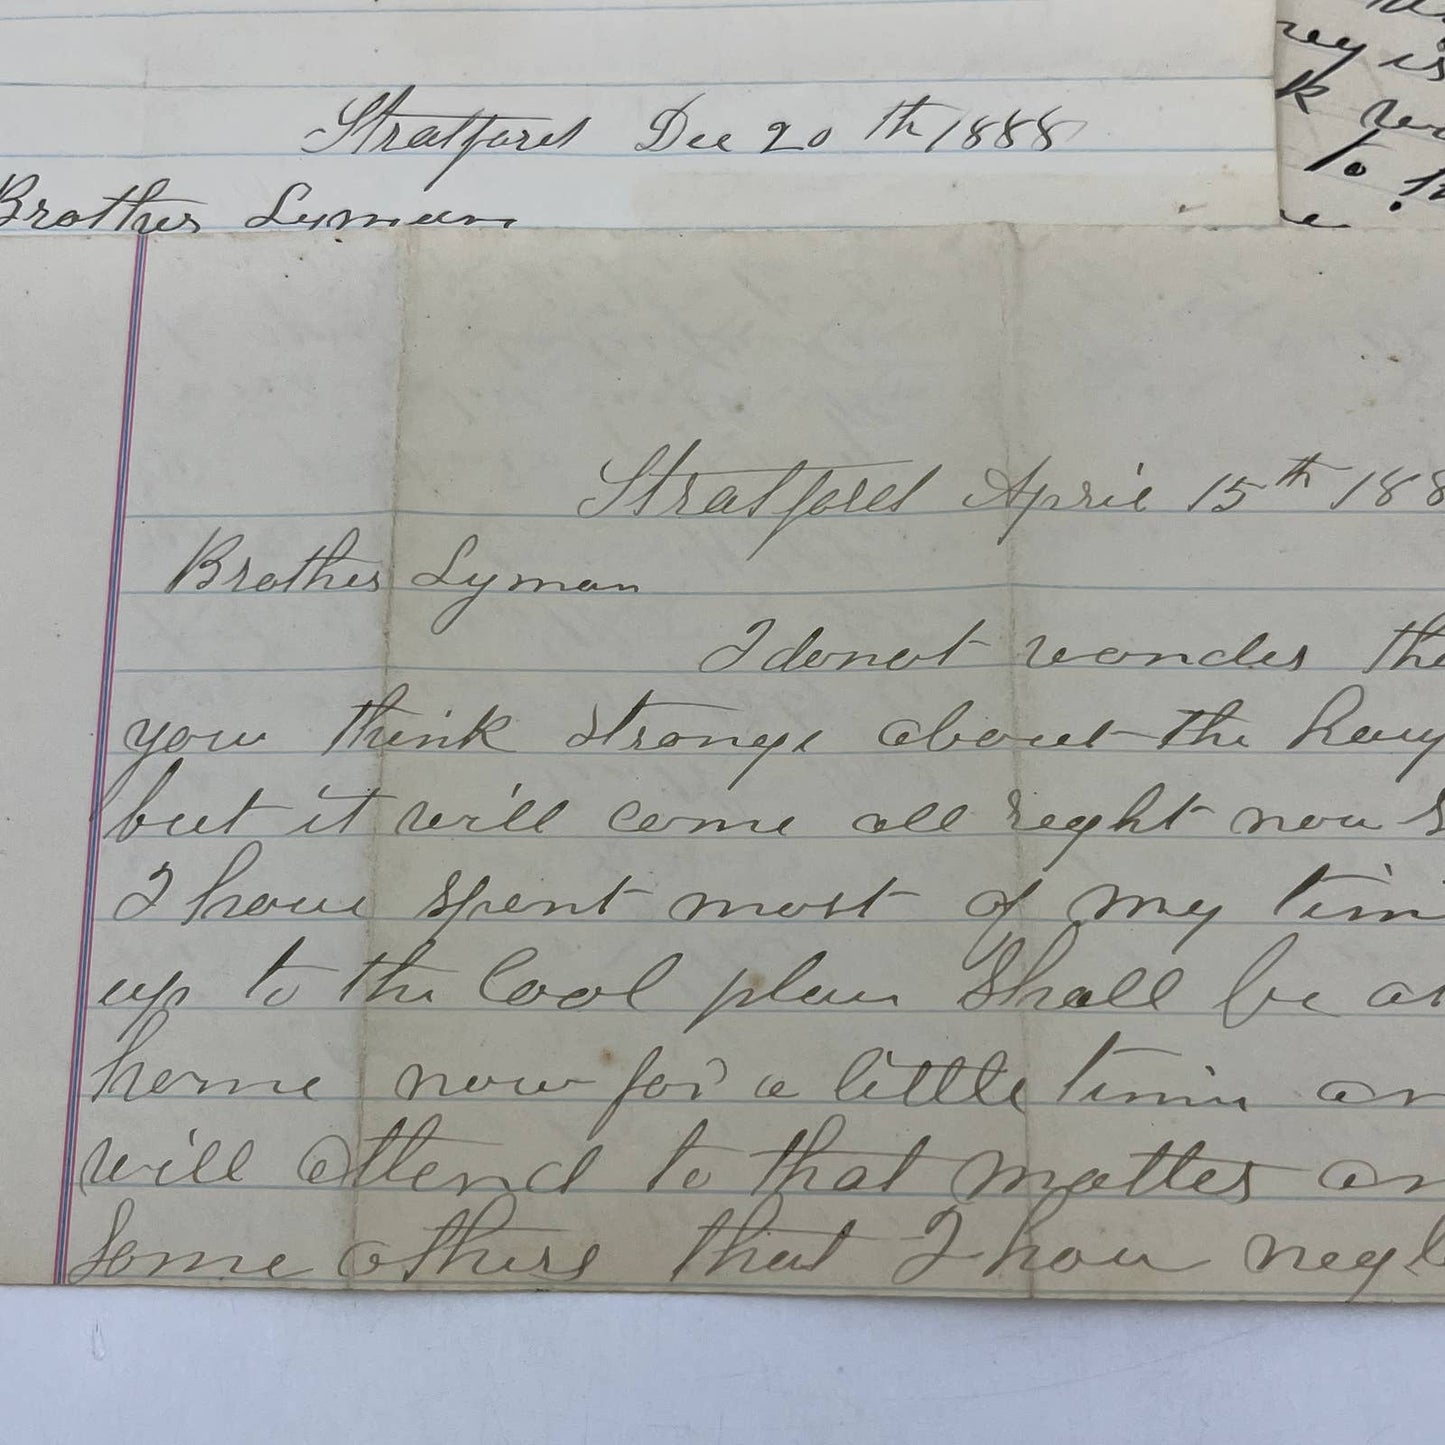 Stratford Dec 20th 1888
Brother Lyman
Stratford April 15th 188
Brother Lyman
I do not wonder tha
you think strange about the hay
but it will come all right now
I have spent most of my tim
up to the Cool plan Shall be at
home now for a little time an
will attend to that matter an
some others that I have negl
ey is
k
to